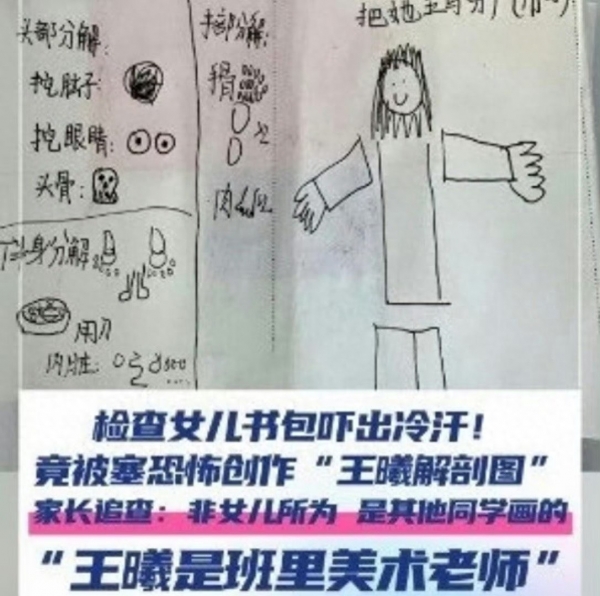 头部分解:
挖肽子:
挖眼睛:
头骨:
下半身分解
用刀
内脏:
部分解:
骨
x2
肉
把她
检查女儿书包吓出冷汗!
竟被塞恐怖创作“王曦解剖图”
家长追查:非女儿所为 是其他同学画的
“王曦是班里美术老师”